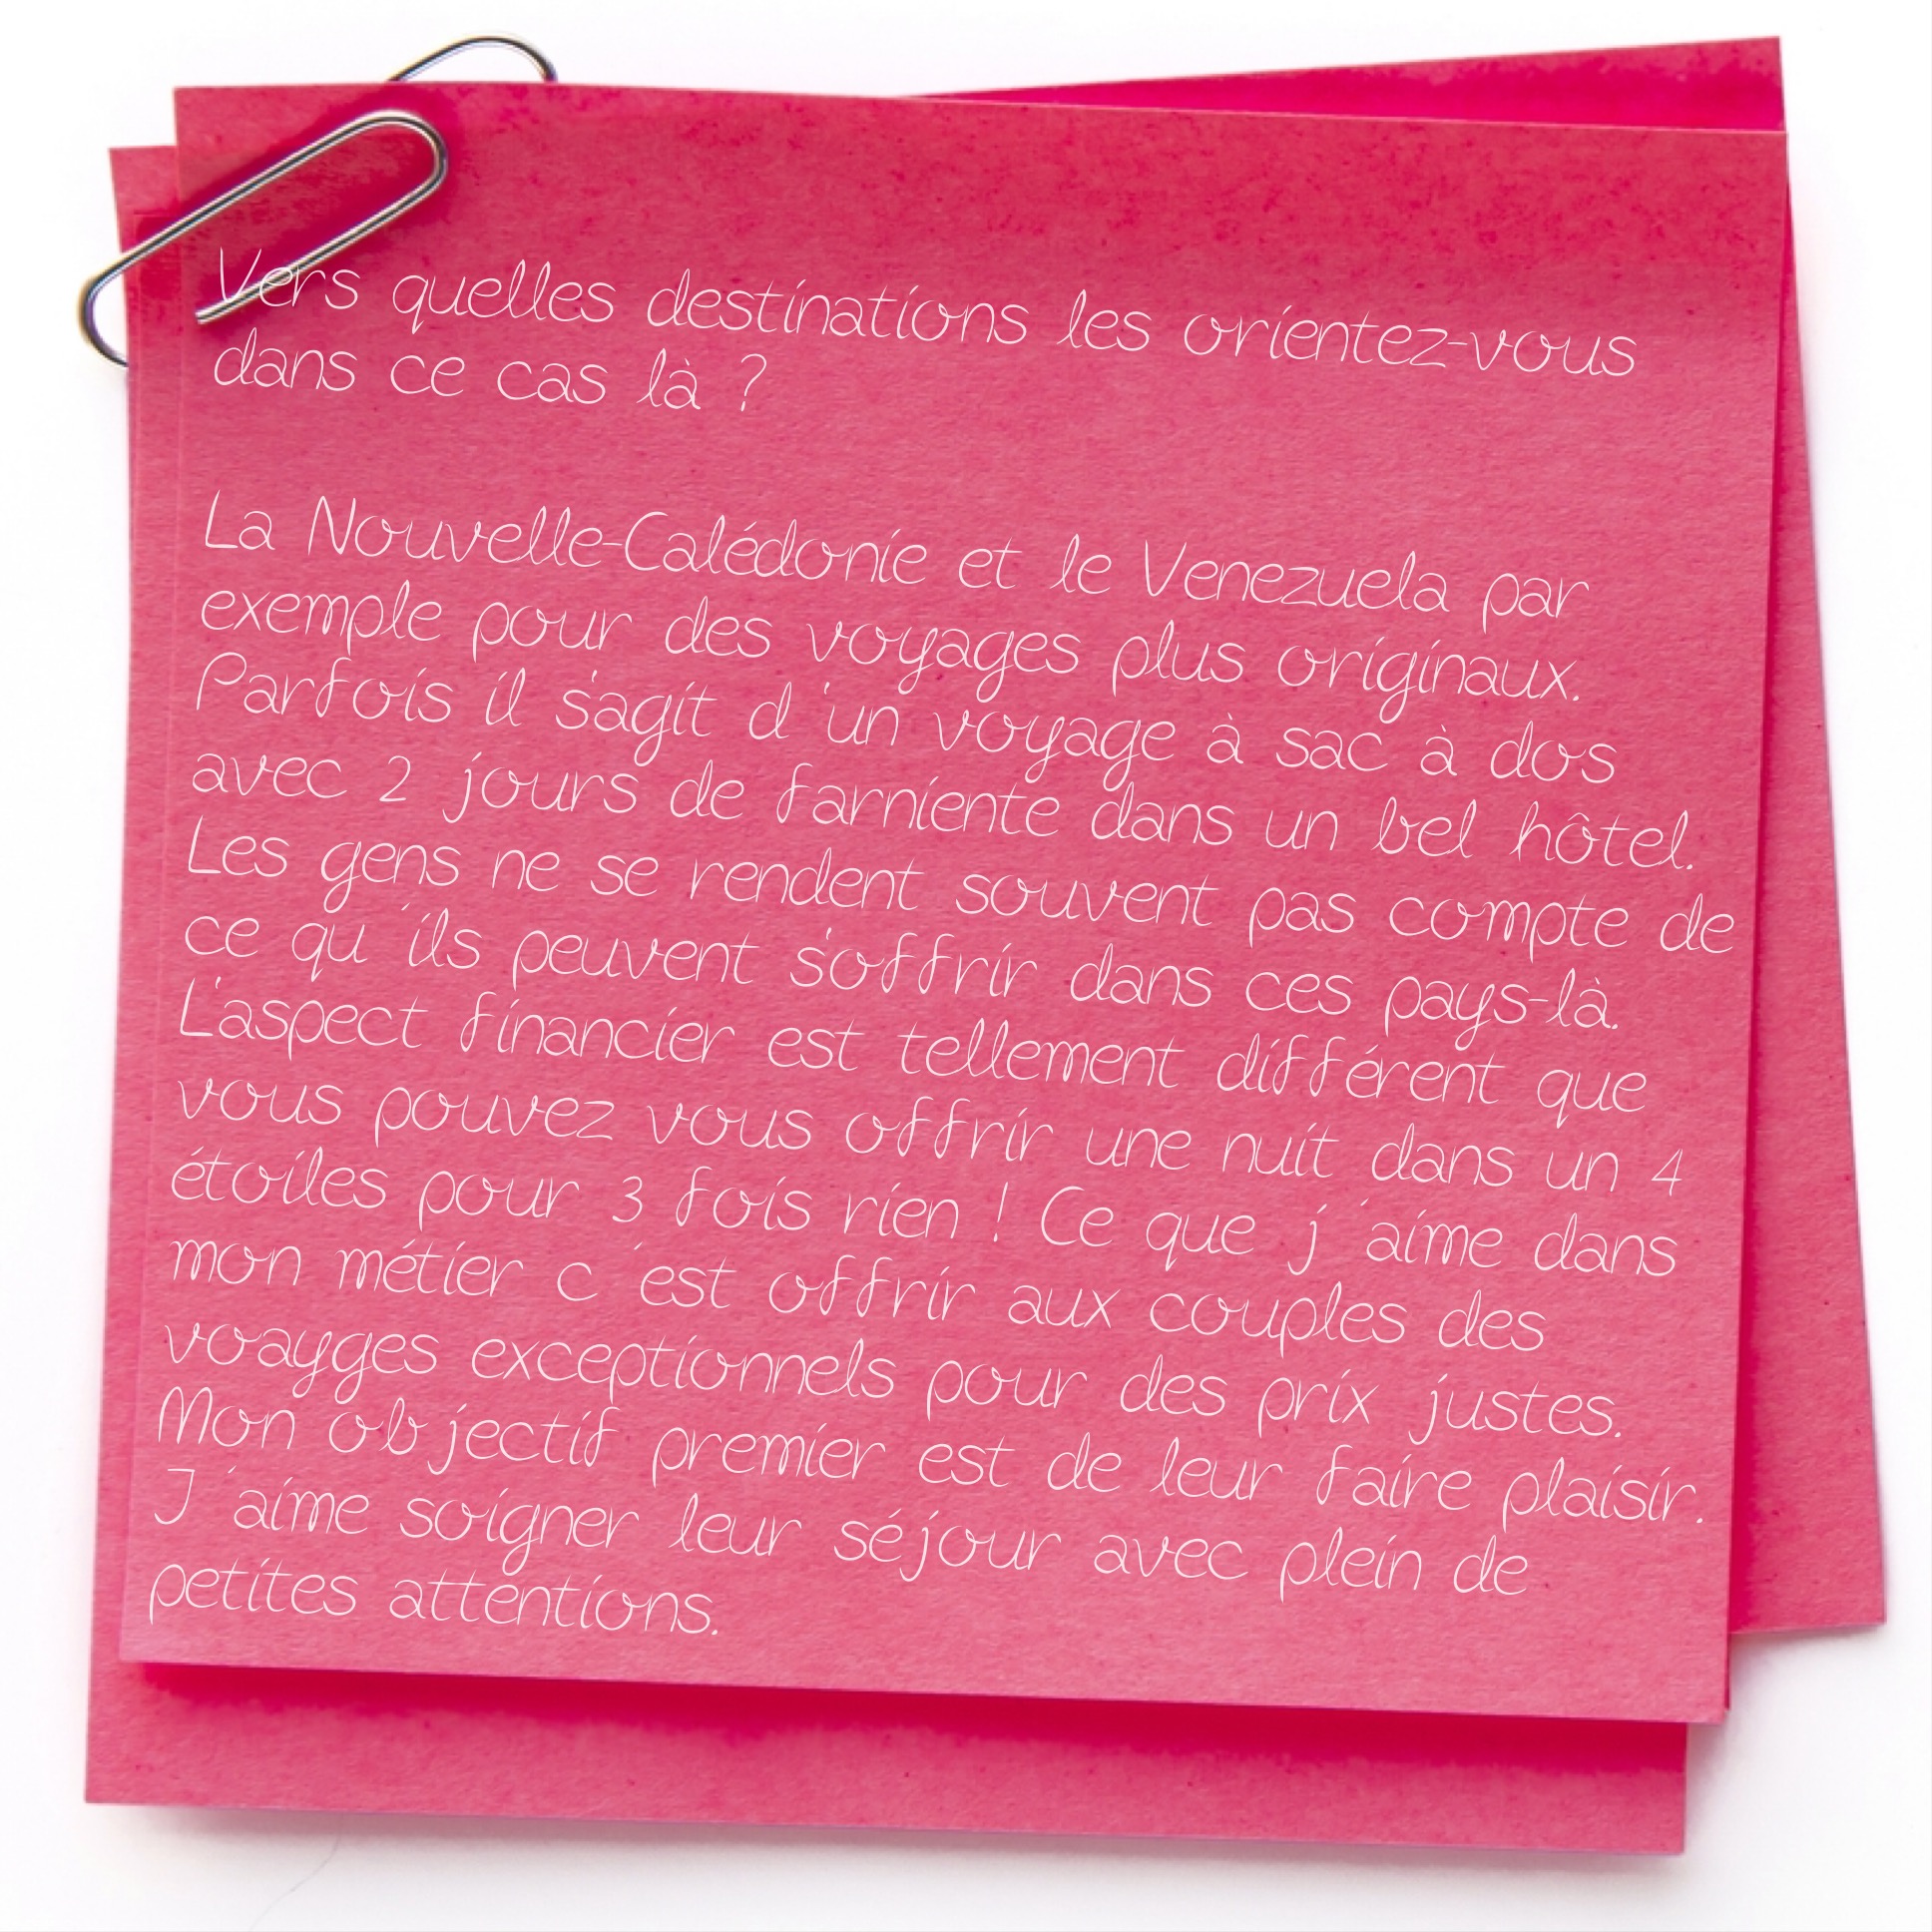 Vers quelles destinations les orientez-vous
dans ce cas là ?
La Nouvelle-Calédonie et le Venezuela par
exemple pour des voyages plus originaux.
Parfois il s'agit d'un voyage à sac à dos
avec 2 jours de farniente dans un bel hôtel.
Les gens ne se rendent souvent pas compte de
ce qu'ils peuvent s'offrir dans ces pays-là.
L'aspect financier est tellement différent que
vous pouvez vous offrir une nuit dans un 4
étoiles pour 3 fois rien ! Ce que j'aime dans
mon métier c'est offrir aux couples des
voayges exceptionnels pour des prix justes.
Mon objectif premier est de leur faire plaisir.
J'aime soigner leur séjour avec plein de
petites attentions.